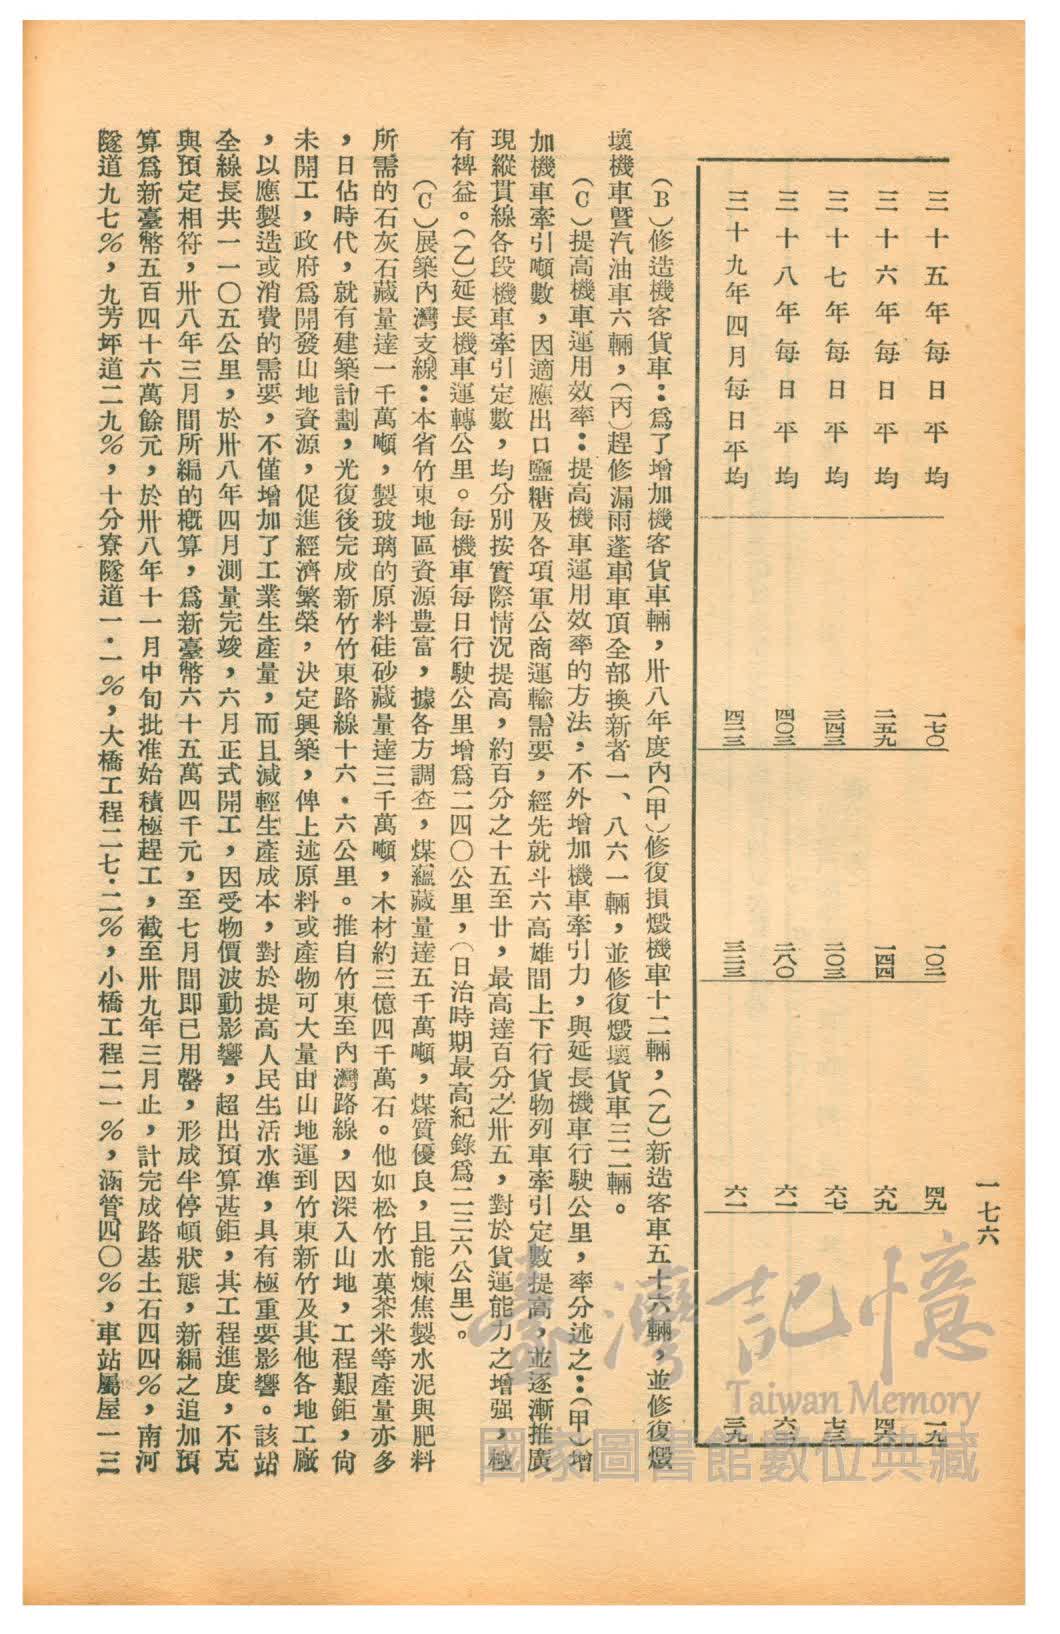 一七六
三十五年每日平均 一七〇 一〇二 四九 一九
三十六年每日平均 二五九 一四四 六九 四六
三十七年每日平均 三四三 二〇三 六七 七三
三十八年每日平均 四〇三 二八〇 六二
三十九年四月每日平均 四二三 三二三 六一 三九
(B)修造機客貨車:爲了增加機客貨車輛,卅八年度內(甲)修復損燬機車十二輛,(乙)新造客車五十六輛,並修復燬
壞機車暨汽油車六輛,(丙)趕修漏雨蓬車車頂全部換新者一、八六一輛,並修復燬壞貨車三二輛。
(C)提高機車運用效率:提高機車運用效率的方法,不外增加機車牽引力,與延長機車行駛公里,率分述之:(甲)增
加機車牽引噸數,因適應出口鹽糖及各項軍公商運輸需要,經先就斗六高雄間上下行貨物列車牽引定數提高,並逐漸推廣
現縱貫線各段機車牽引定數,均分別按實際情況提高,約百分之十五至廿,最高達百分之卅五,對於貨運能力之增强,極
有裨益。(乙)延長機車運轉公里。每機車每日行駛公里增爲二四〇公里,(日治時期最高紀錄爲二三六公里)。
(C)展築內灣支線:本省竹東地區資源豐富,據各方調查,煤蘊藏量達五千萬噸,煤質優良,且能煉焦製水泥與肥料
所需的石灰石藏量達一千萬噸,製玻璃的原料硅砂藏量達三千萬噸,木材約三億四千萬石。他如松竹水菓茶米等產量亦多
,日佔時代,就有建築計劃,光復後完成新竹竹東路線十六.六公里。推自竹東至內灣路線,因深入山地,工程艱鉅,尙
未開工,政府爲開發山地資源,促進經濟繁榮,決定興築,俾上述原料或產物可大量由山地運到竹東新竹及其他各地工廠
,以應製造或消費的需要,不僅增加了工業生產量,而且減輕生產成本,對於提高人民生活水準,具有極重要影響。該站
全線長共一一〇五公里,於卅八年四月測量完竣,六月正式開工,因受物價波動影響,超出預算甚鉅,其工程進度,不克
與預定相符,卅八年三月間所編的槪算,爲新臺幣六十五萬四千元,至七月間即已用罄,形成半停頓狀態,新編之追加預
算爲新臺幣五百四十六萬餘元,於卅八年十一月中旬批准始積極趕工,截至卅九年三月止,計完成路基土石四四%,南河
隧道九七%,九芳坪道二九%,十分寮隧道一.一%,大橋工程二七.二%,小橋工程二一%,涵管四〇%,車站屬屋一三
臺灣記憶
Taiwan Memory
國家圖書館數位典藏